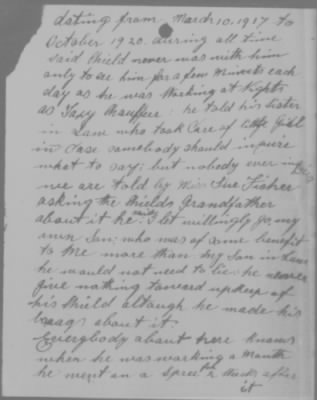 dating from March 10, 1917 to
October 1920. during all time
said Shield never was with him
only to see him for a few minuts each
day as he was Working at Nights
as Taxy Chauffeur : he told his Sister
in Law who took Care of little Girl
in Case somebody should inqure
what to say; but nobody ever inq
nor are told by Miss Sue Fisher
asking the Shields Grandfather
about it he said I let willingly go, my
own Son, who was of some benefit
to Me more than my Son in Law
he would not need to lie. he never
give nothing toward upkeep of
his Shield altough he made his
braags about it
Everybody about here Knows
when he was working a Month
he went on a Spree Weeks after
it